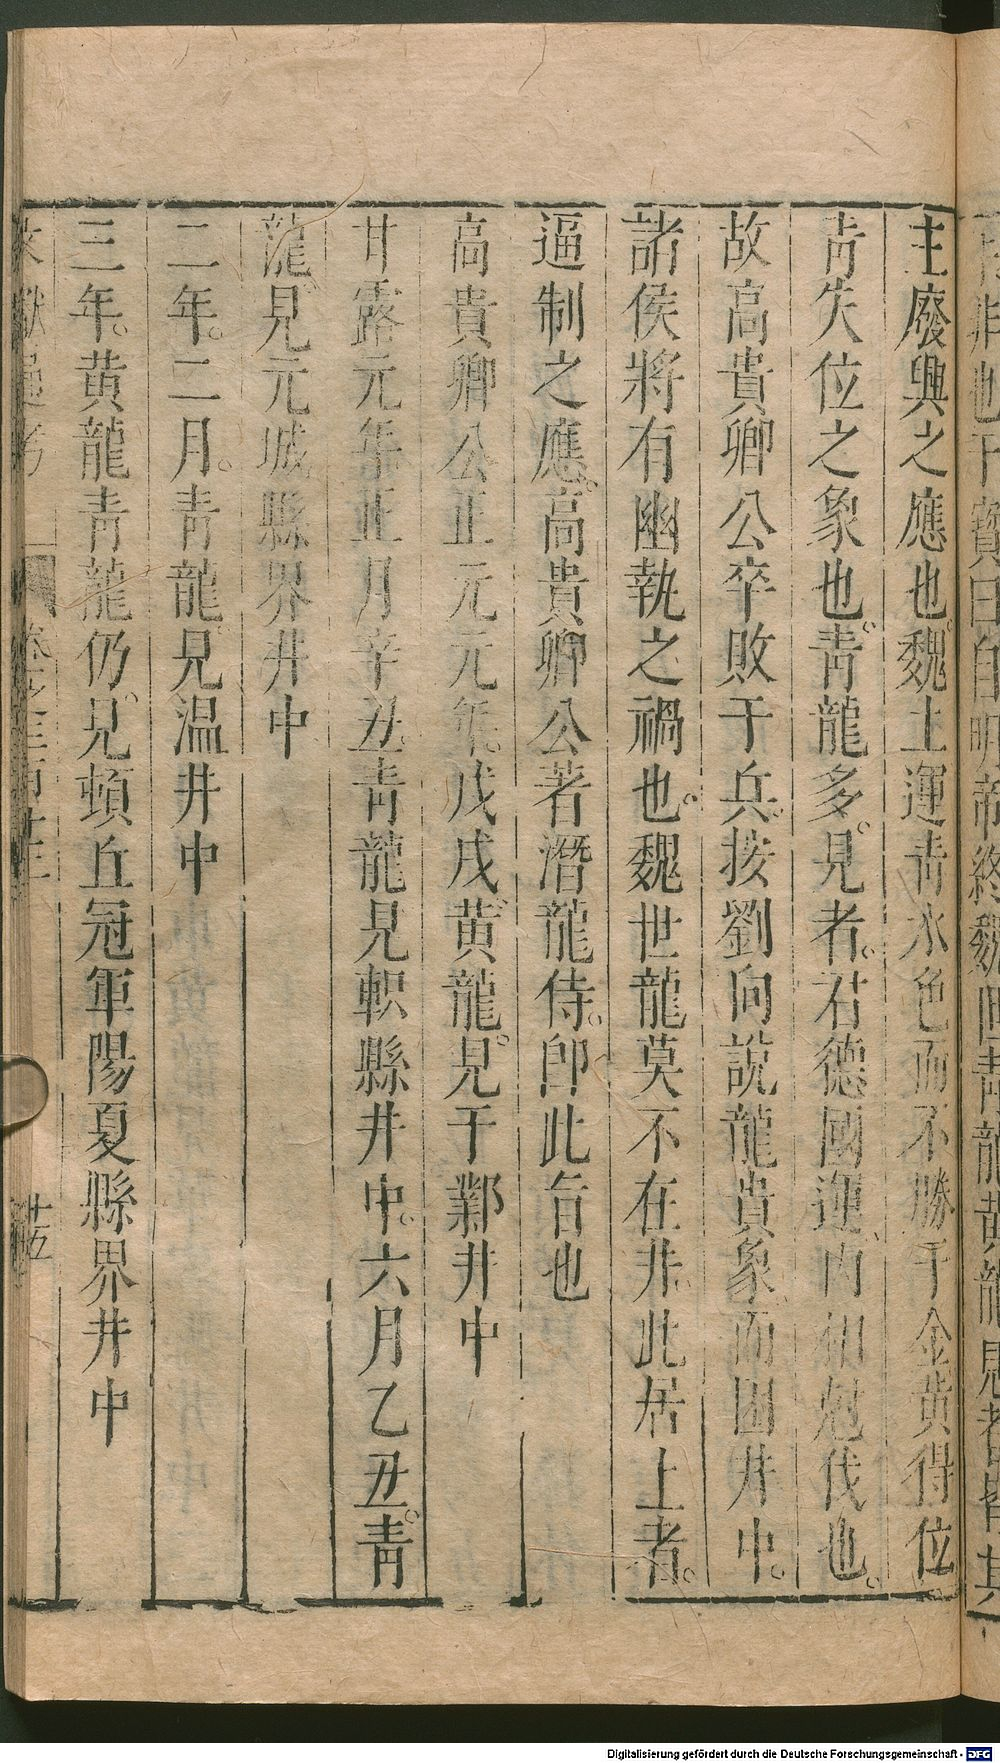 主廢興之應也。魏土運青水色而不勝于金黄得位
青失位之象也。青龍多見者。若德國運内相尅伐也。
故高貴卿公卒敗于兵。按劉向說龍貴象而困井中。
諸侯將有幽執之禍也。魏世龍莫不在井此居上者。
逼制之應。高貴卿公著潛龍侍。卽此旨也
高貴卿公正元元年。戊戌黄龍。見于鄴井中
甘露元年正月辛丑。青龍見軹縣井中。六月乙丑。青
龍見元城縣界井中
二年。二月。青龍見温井中
三年。黄龍青龍仍。見頓丘冠軍陽夏縣界井中
廿五
Digitalisierung gefördert durch die Deutsche Forschungsgemeinschaft - DFG